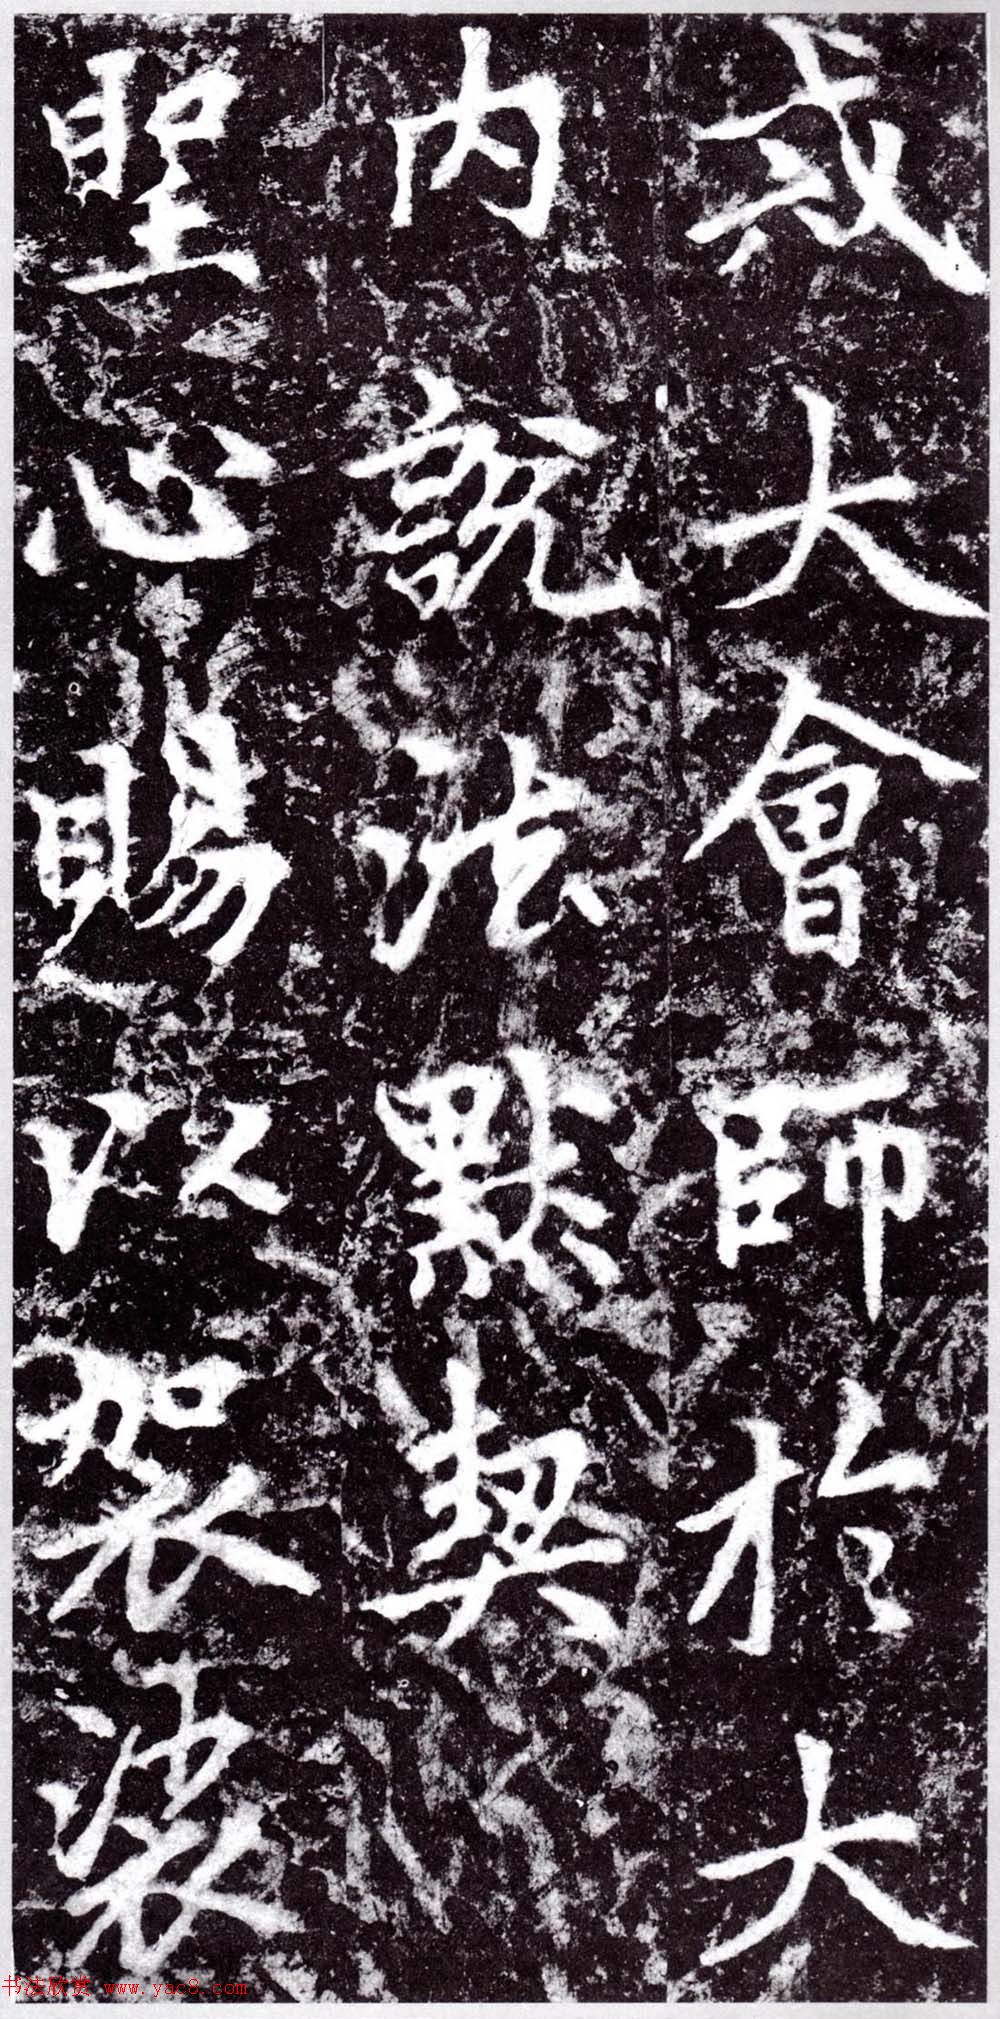 或大會師於大
内說法默契
聖心賜以袈裟
书法欣赏 www.yac8.com